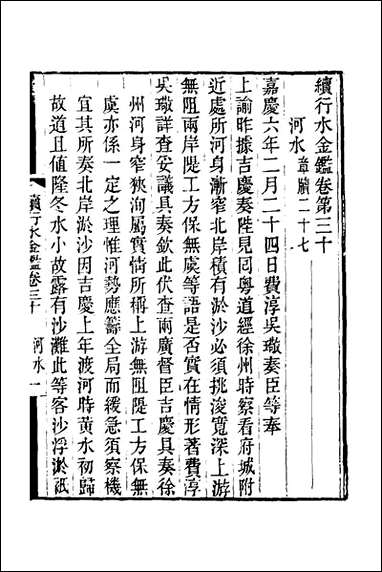 續行水金鑑卷第三十
河水 章牘二十七
嘉慶六年二月二十四日費淳吳璥奏臣等奉
上諭昨據吉慶奏陛見回粵道經徐州時察看府城附
近處所河身漸窄北岸積有淤沙必須挑浚寬深上游
無阻兩岸隄工方保無虞等語是否實在情形著費淳
吳璥詳查妥議具奏欽此伏查兩廣督臣吉慶具奏徐
州河身窄狹洵屬實情所稱上游無阻隄工方保無
虞亦係一定之理惟河勢應籌全局而緩急須察機
宜其所奏北岸淤沙因吉慶上年渡河時黃水初歸
故道且值隆冬水小故露有沙灘此等客沙浮淤祇
續行水金鑑卷三十 河水 一